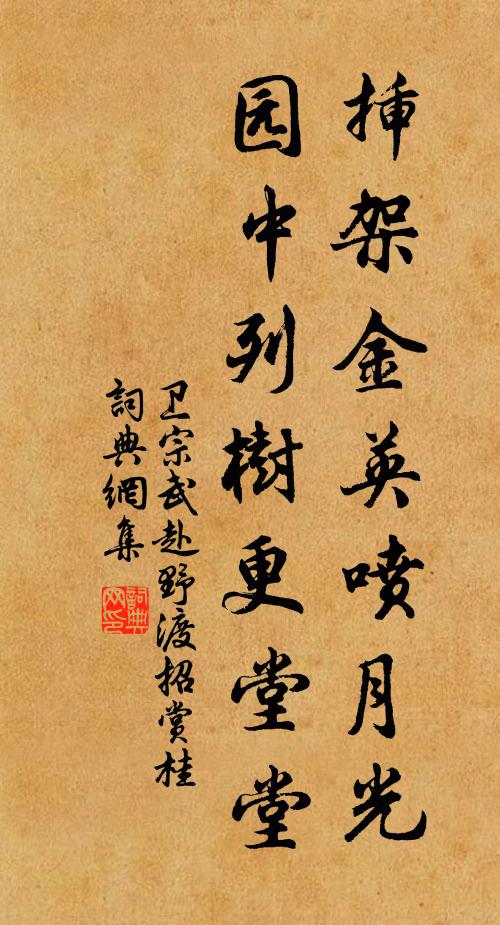 揷架金英喷月光
园中列樹更堂堂
卫宗武赴野渡招赏桂
詞典網集
詞典网印